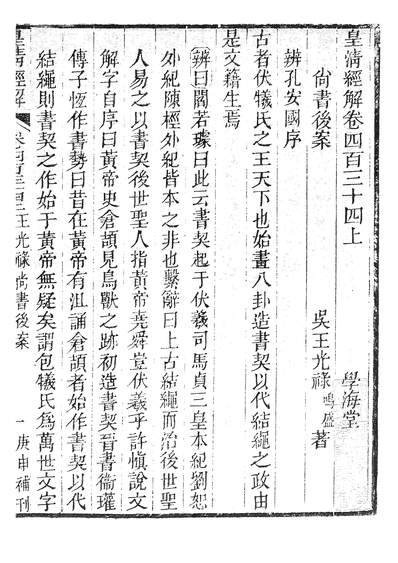 皇清經解卷四百三十四上　學海堂
尙書後案　吳王光祿鳴盛著
辨孔安國序
古者伏犧氏之王天下也始畫八卦造書契以代結繩之政由
是文籍生焉
辨曰閻若璩曰此云書契起于伏羲司馬貞三皇本紀劉恕
外紀陳桱外紀皆本之非也繫辭曰上古結繩而治後世聖
人易之以書契後世聖人指黃帝堯舜豈伏羲乎許愼說文
解字自序曰黃帝史倉頡見鳥獸之跡初造書契晉書衞瓘
傳子恆作書勢曰昔在黃帝有沮誦倉頡者始作書契以代
結繩則書契之作始于黃帝無疑矣謂包犧氏爲萬世文字
皇清經解　卷四百三十四　王光祿尙書後案　一　庚申補刊